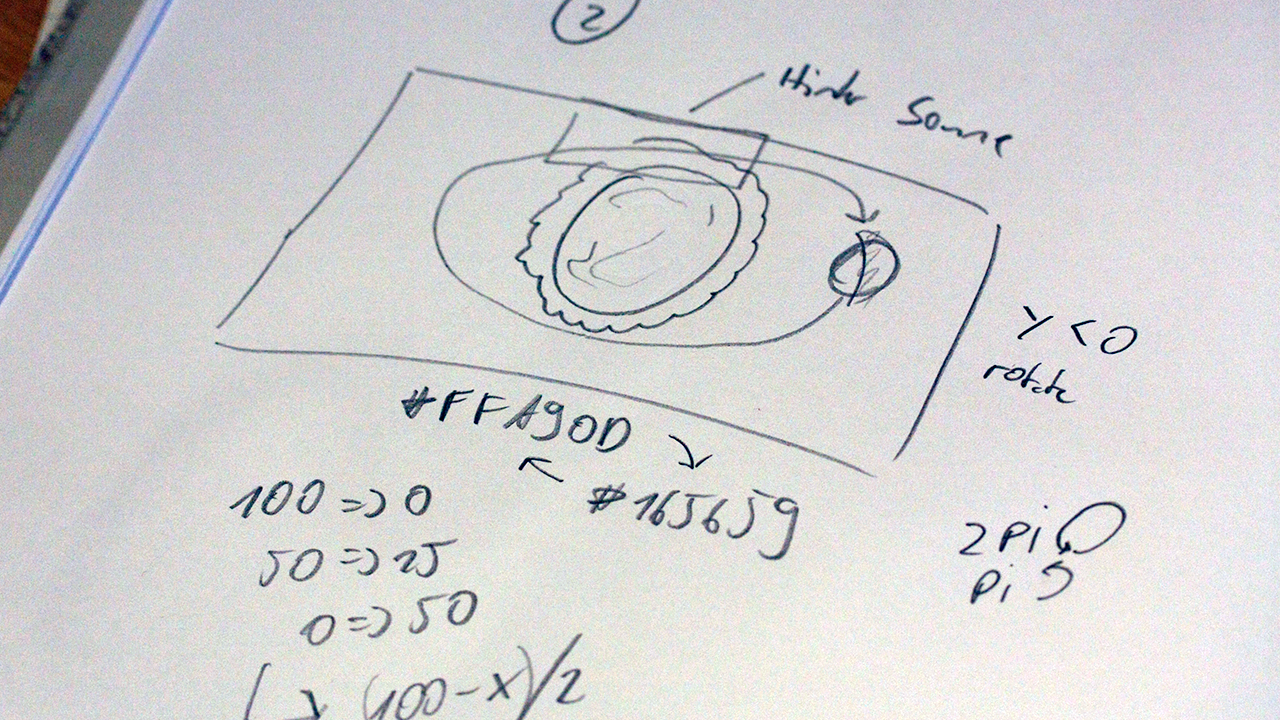 2
Hinter Sonne
y < 0
rotate
#FFA90D
#165659
100 => 0
50 => 25
0 => 50
(100-x)/2
2pi
pi